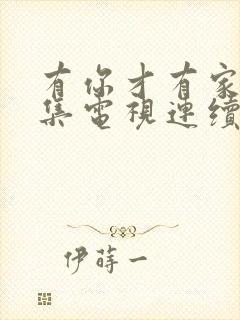 有你才有家
集電視連續
伊蒔一